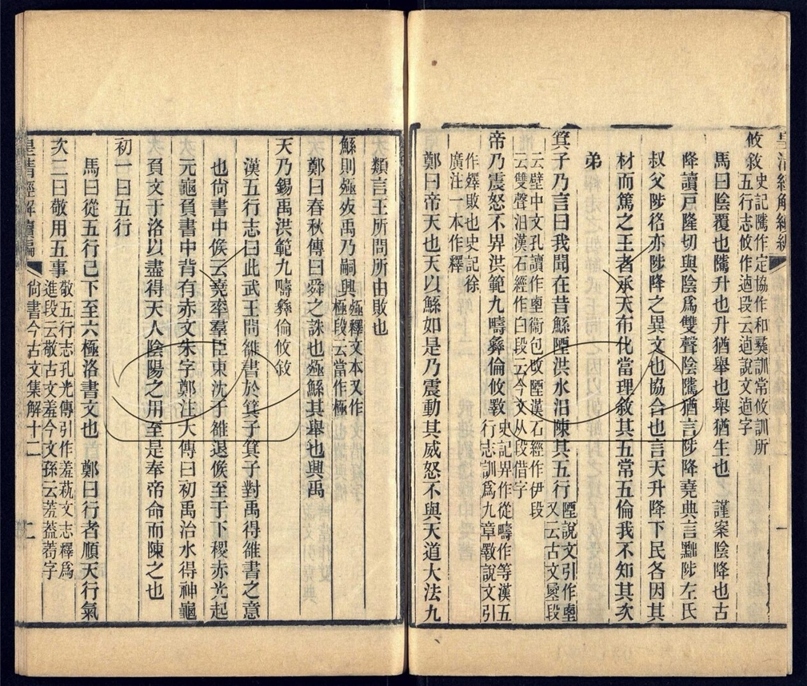 攸敘史記隲作定協作和彝訓常攸訓所
五行志攸作逌段云逌說文逌字
馬曰陰覆也隲升也升猶舉也舉猶生也　謹案陰降也古
降讀戸隆切與陰爲雙聲陰隲猶言陟降堯典言黜陟左氏
叔父陟恪亦陟降之異文也協合也言天升降下民各因其
材而篤之王者承天布化當理敘其五常五倫我不知其次
弟
箕子乃言曰我聞在昔鯀陻洪水汨陳其五行陻說文引作垔
又云古文𡎺段
云壁中文孔讀作垔衞包改陻漢石經作伊段
云雙聲汨漢石經作曰段云今文从段借字
帝乃震怒不畀洪範九疇彝倫攸斁史記畀作從疇作等漢五
行志訓爲九章斁說文引
作殬敗也史記徐
廣注一本作釋
鄭曰帝天也天以鯀如是乃震動其威怒不與天道大法九
類言王所問所由敗也
鯀則殛死禹乃嗣興殛釋文本又作
極段云當作極
鄭曰春秋傳曰舜之誅也殛鯀其舉也興禹
天乃錫禹洪範九疇彝倫攸敘
漢五行志曰此武王問雒書於箕子箕子對禹得雒書之意
也尙書中候云堯率羣臣東沈于雒退候至于下稷赤光起
元龜負書中背有赤文朱字鄭注大傳曰初禹治水得神龜
負文于洛以盡得天人陰陽之用至是奉帝命而陳之也
初一曰五行
馬曰從五行已下至六極洛書文也　鄭曰行者順天行氣
次二曰敬用五事敬五行志孔光傳引作羞蓺文志釋爲
進段云敬古文羞今文孫云羞葢苟字
皇清經解續編　尙書今古文集解十二　十一